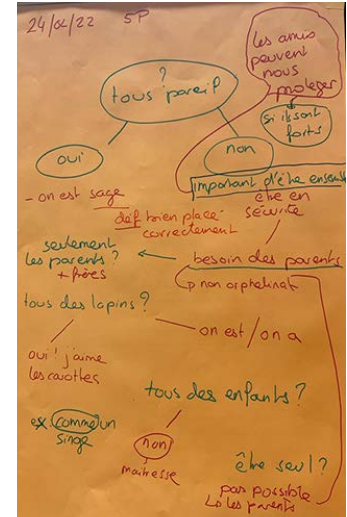 24/01/22 5P
les amis
peuvent
nous
protéger
si ils sont
forts
?
tous pareil
oui
non
- on est sage
important d'être ensemble
être en
sécurité
déf bien placé
correctement
seulement
les parents ?
+ frères
besoin des parents
non orphelinat
tous des lapins ?
on est / on a
oui ! j'aime
les carottes
tous des enfants ?
ex. comme un
singe
non
maitresse
être seul ?
pas possible
les parents